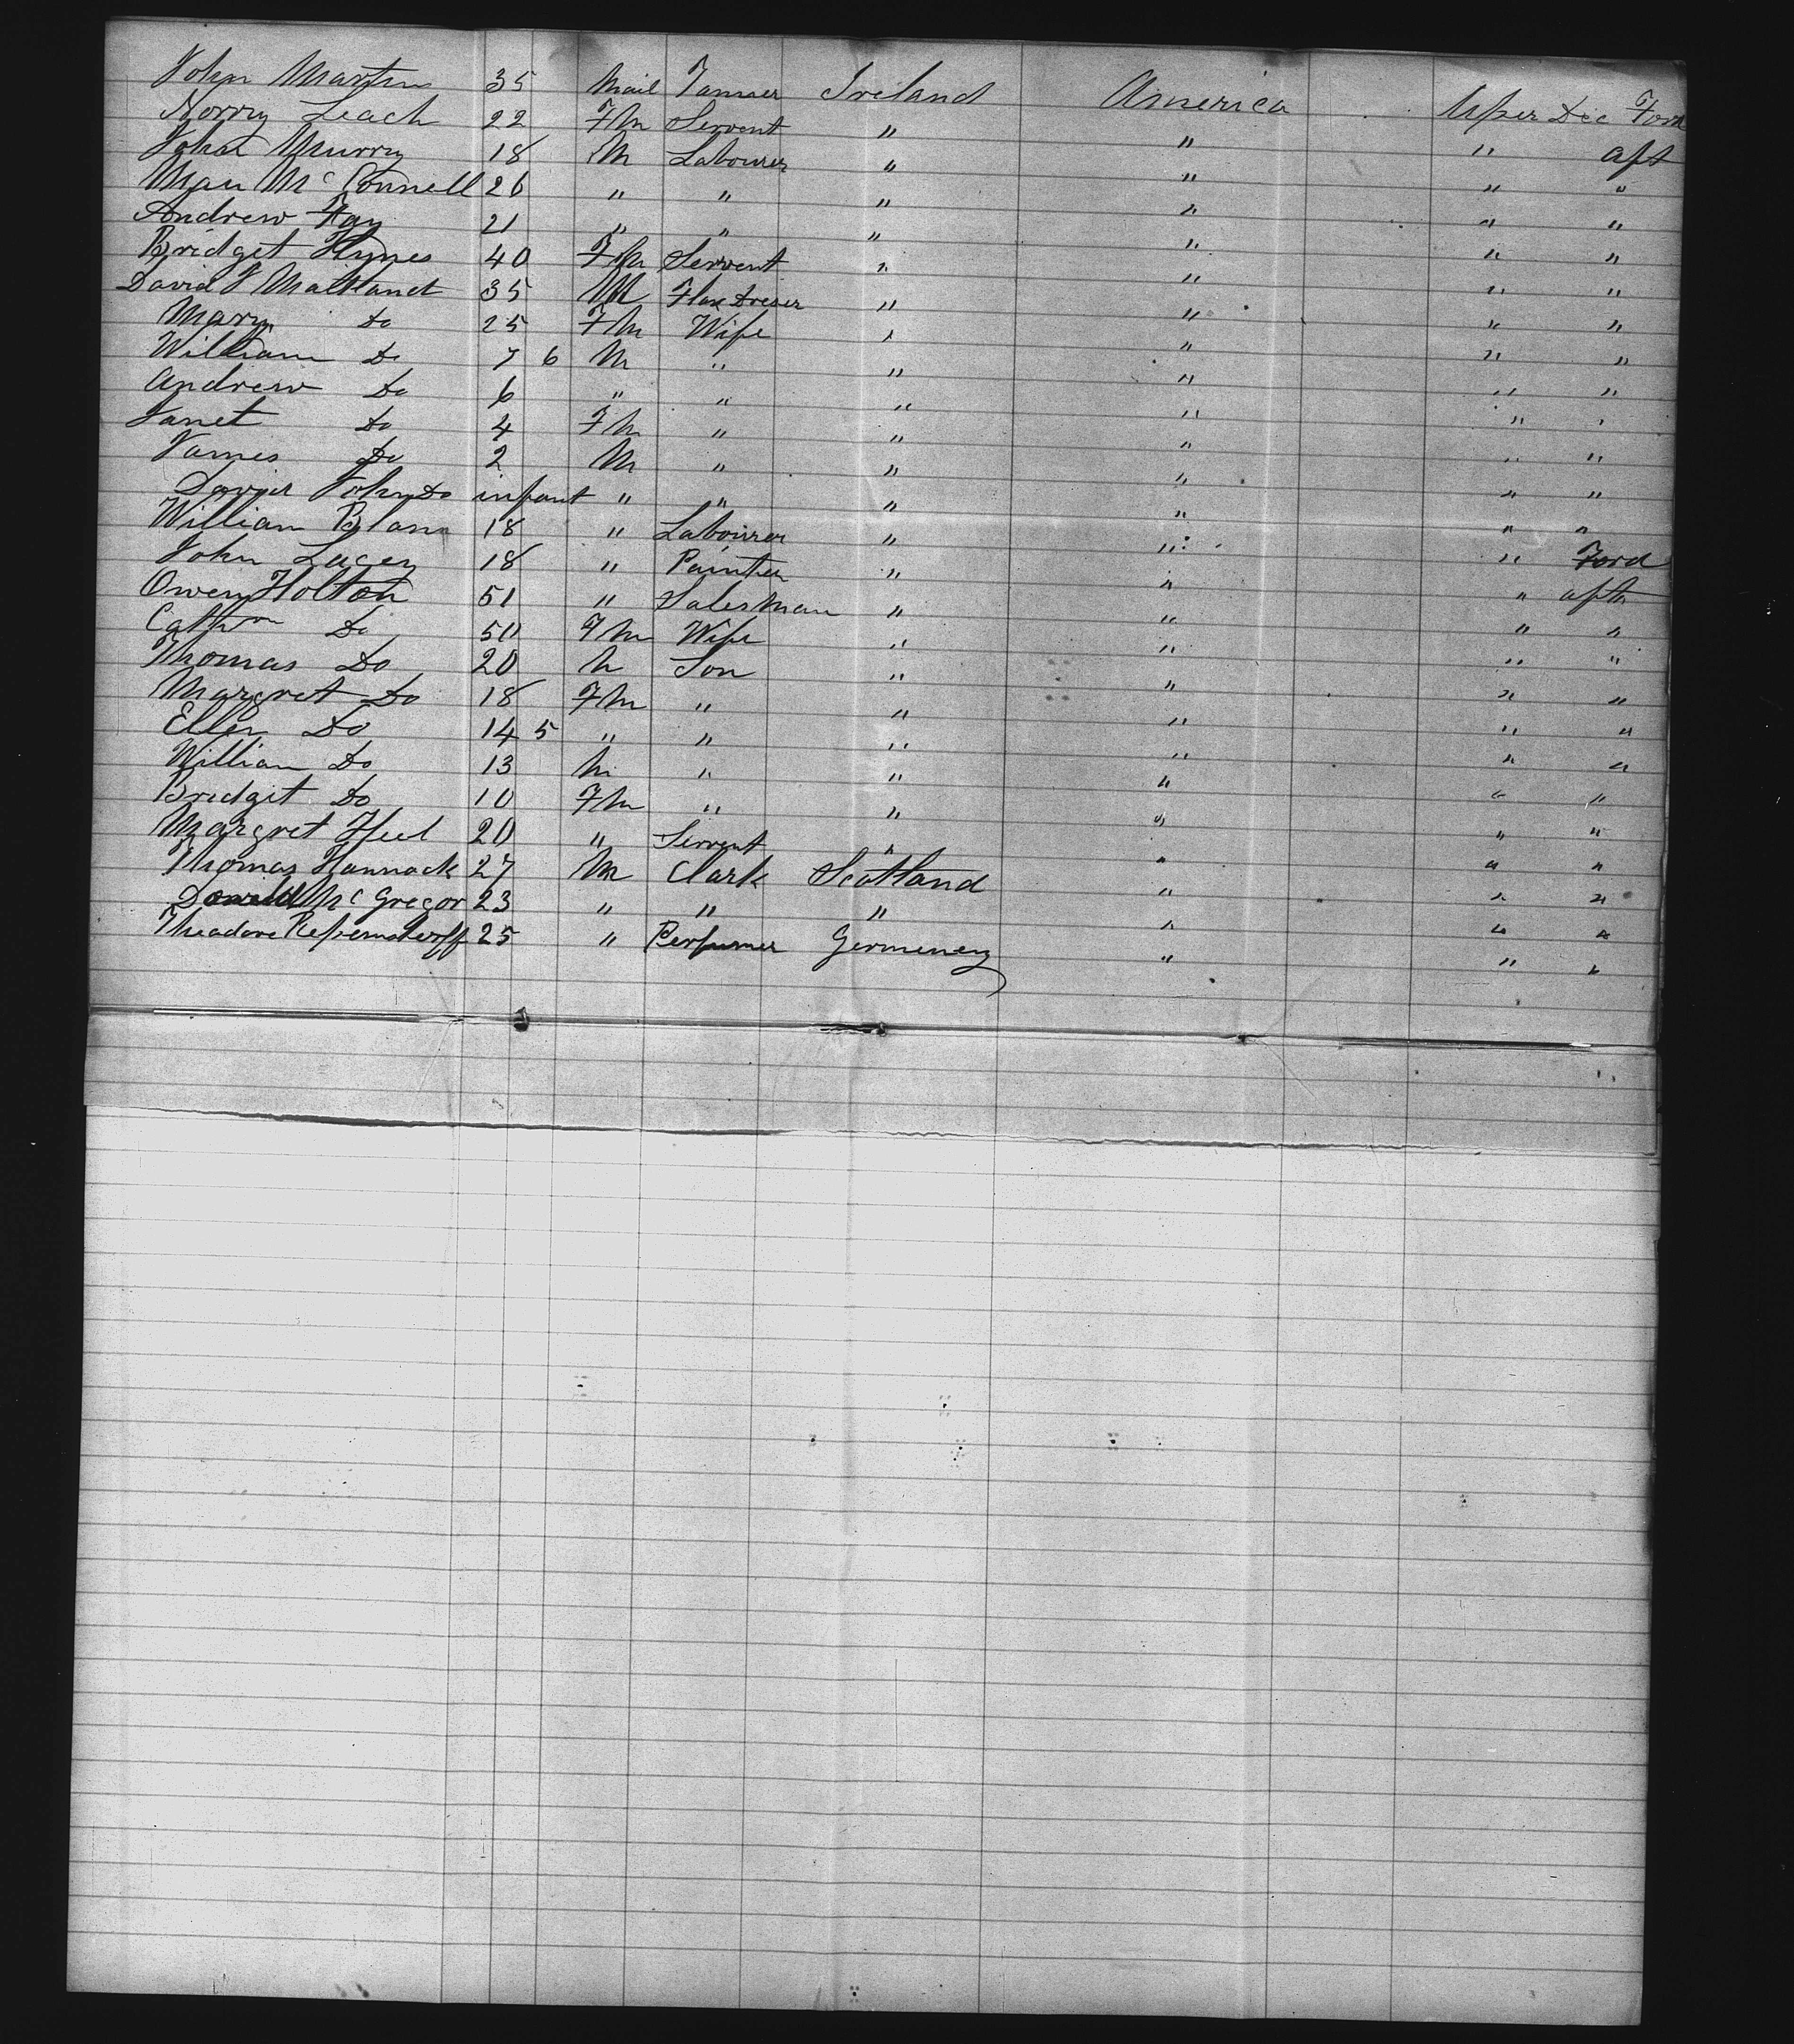 John Martin 35 Mail Tanner Ireland America Upser Dec Ford
Norry Leach 22 Fm Servent " " " aft
John Murry 18 M Labourer " " " "
Mau McConnell 26 " " " " " "
Andrew Fay 21 " " " " " "
Bridget Hynes 40 Fm Servent " " " "
David J Maitland 35 M Flax Dreser " " " "
Mary Do 25 Fm Wife " " " "
William Do 7 6 M " " " " "
Andrew Do 6 " " " " " "
Janet Do 4 Fm " " " " "
James Do 2 M " " " " "
David John Do infant " " " " " "
William Blann 18 " Labourer " " " Ford
John Lacey 18 " Painter " " " aft
Owen Holton 51 " Salesman " " " "
Do 50 Fm Wife " " " "
Thomas Do 20 M Son " " " "
Margret Do 18 Fm " " " " "
Ellen Do 14 5 " " " " " "
William Do 13 M " " " " "
Bridgit Do 10 Fm " " " " "
Margret 20 " Servent " " " "
Thomas Hannack 27 M Clark Scotland " " "
McGregor 23 " " " " " "
Theadore 25 " Perfumer Germeney " " "